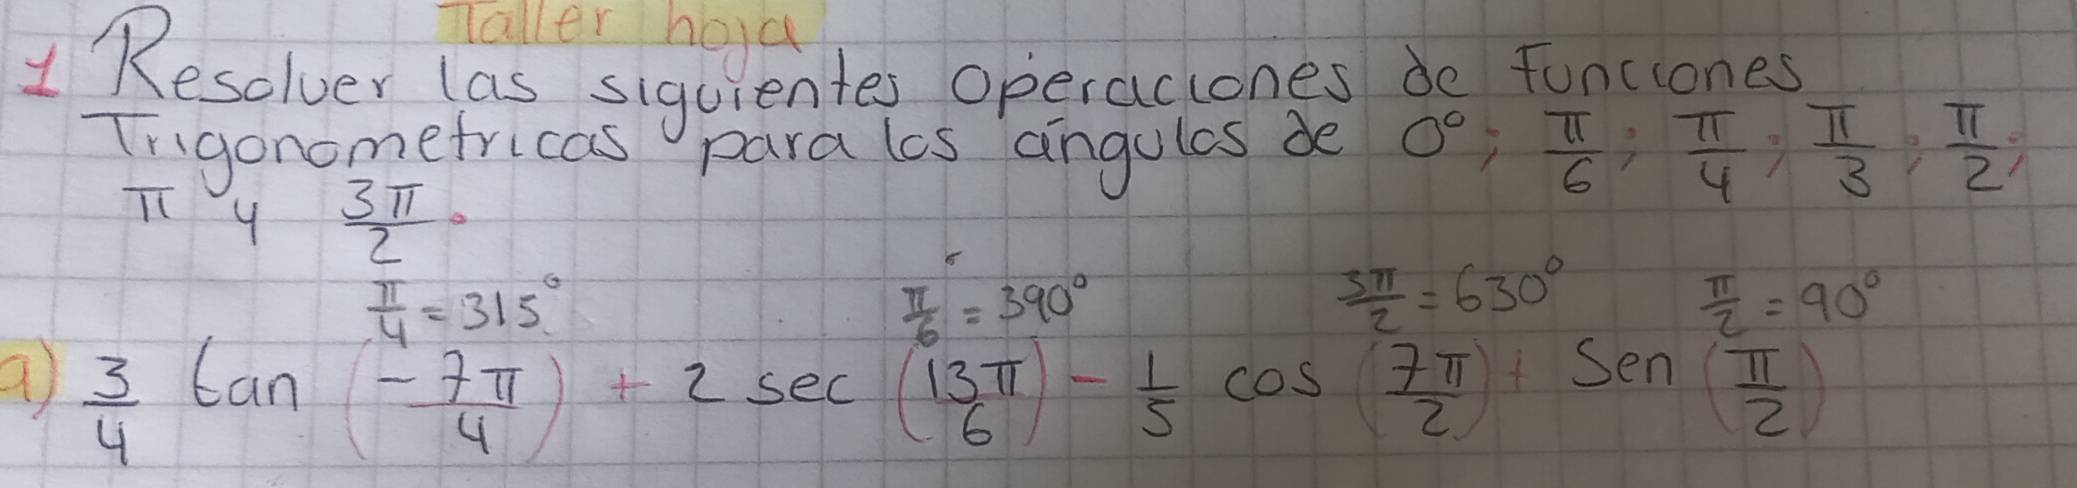 Taller hoja
1 Resolver las siguientes operaciones de funciones
Trigonometricas para los ángulos de 0°; π/6; π/4; π/3; π/2;
π y 3π/2.
π/4 = 315° π/6 = 390° 3π/2 = 630° π/2 = 90°
a) 3/4 tan (-7π/4) + 2 sec (13π/6) - 1/5 cos (7π/2) + Sen (π/2)